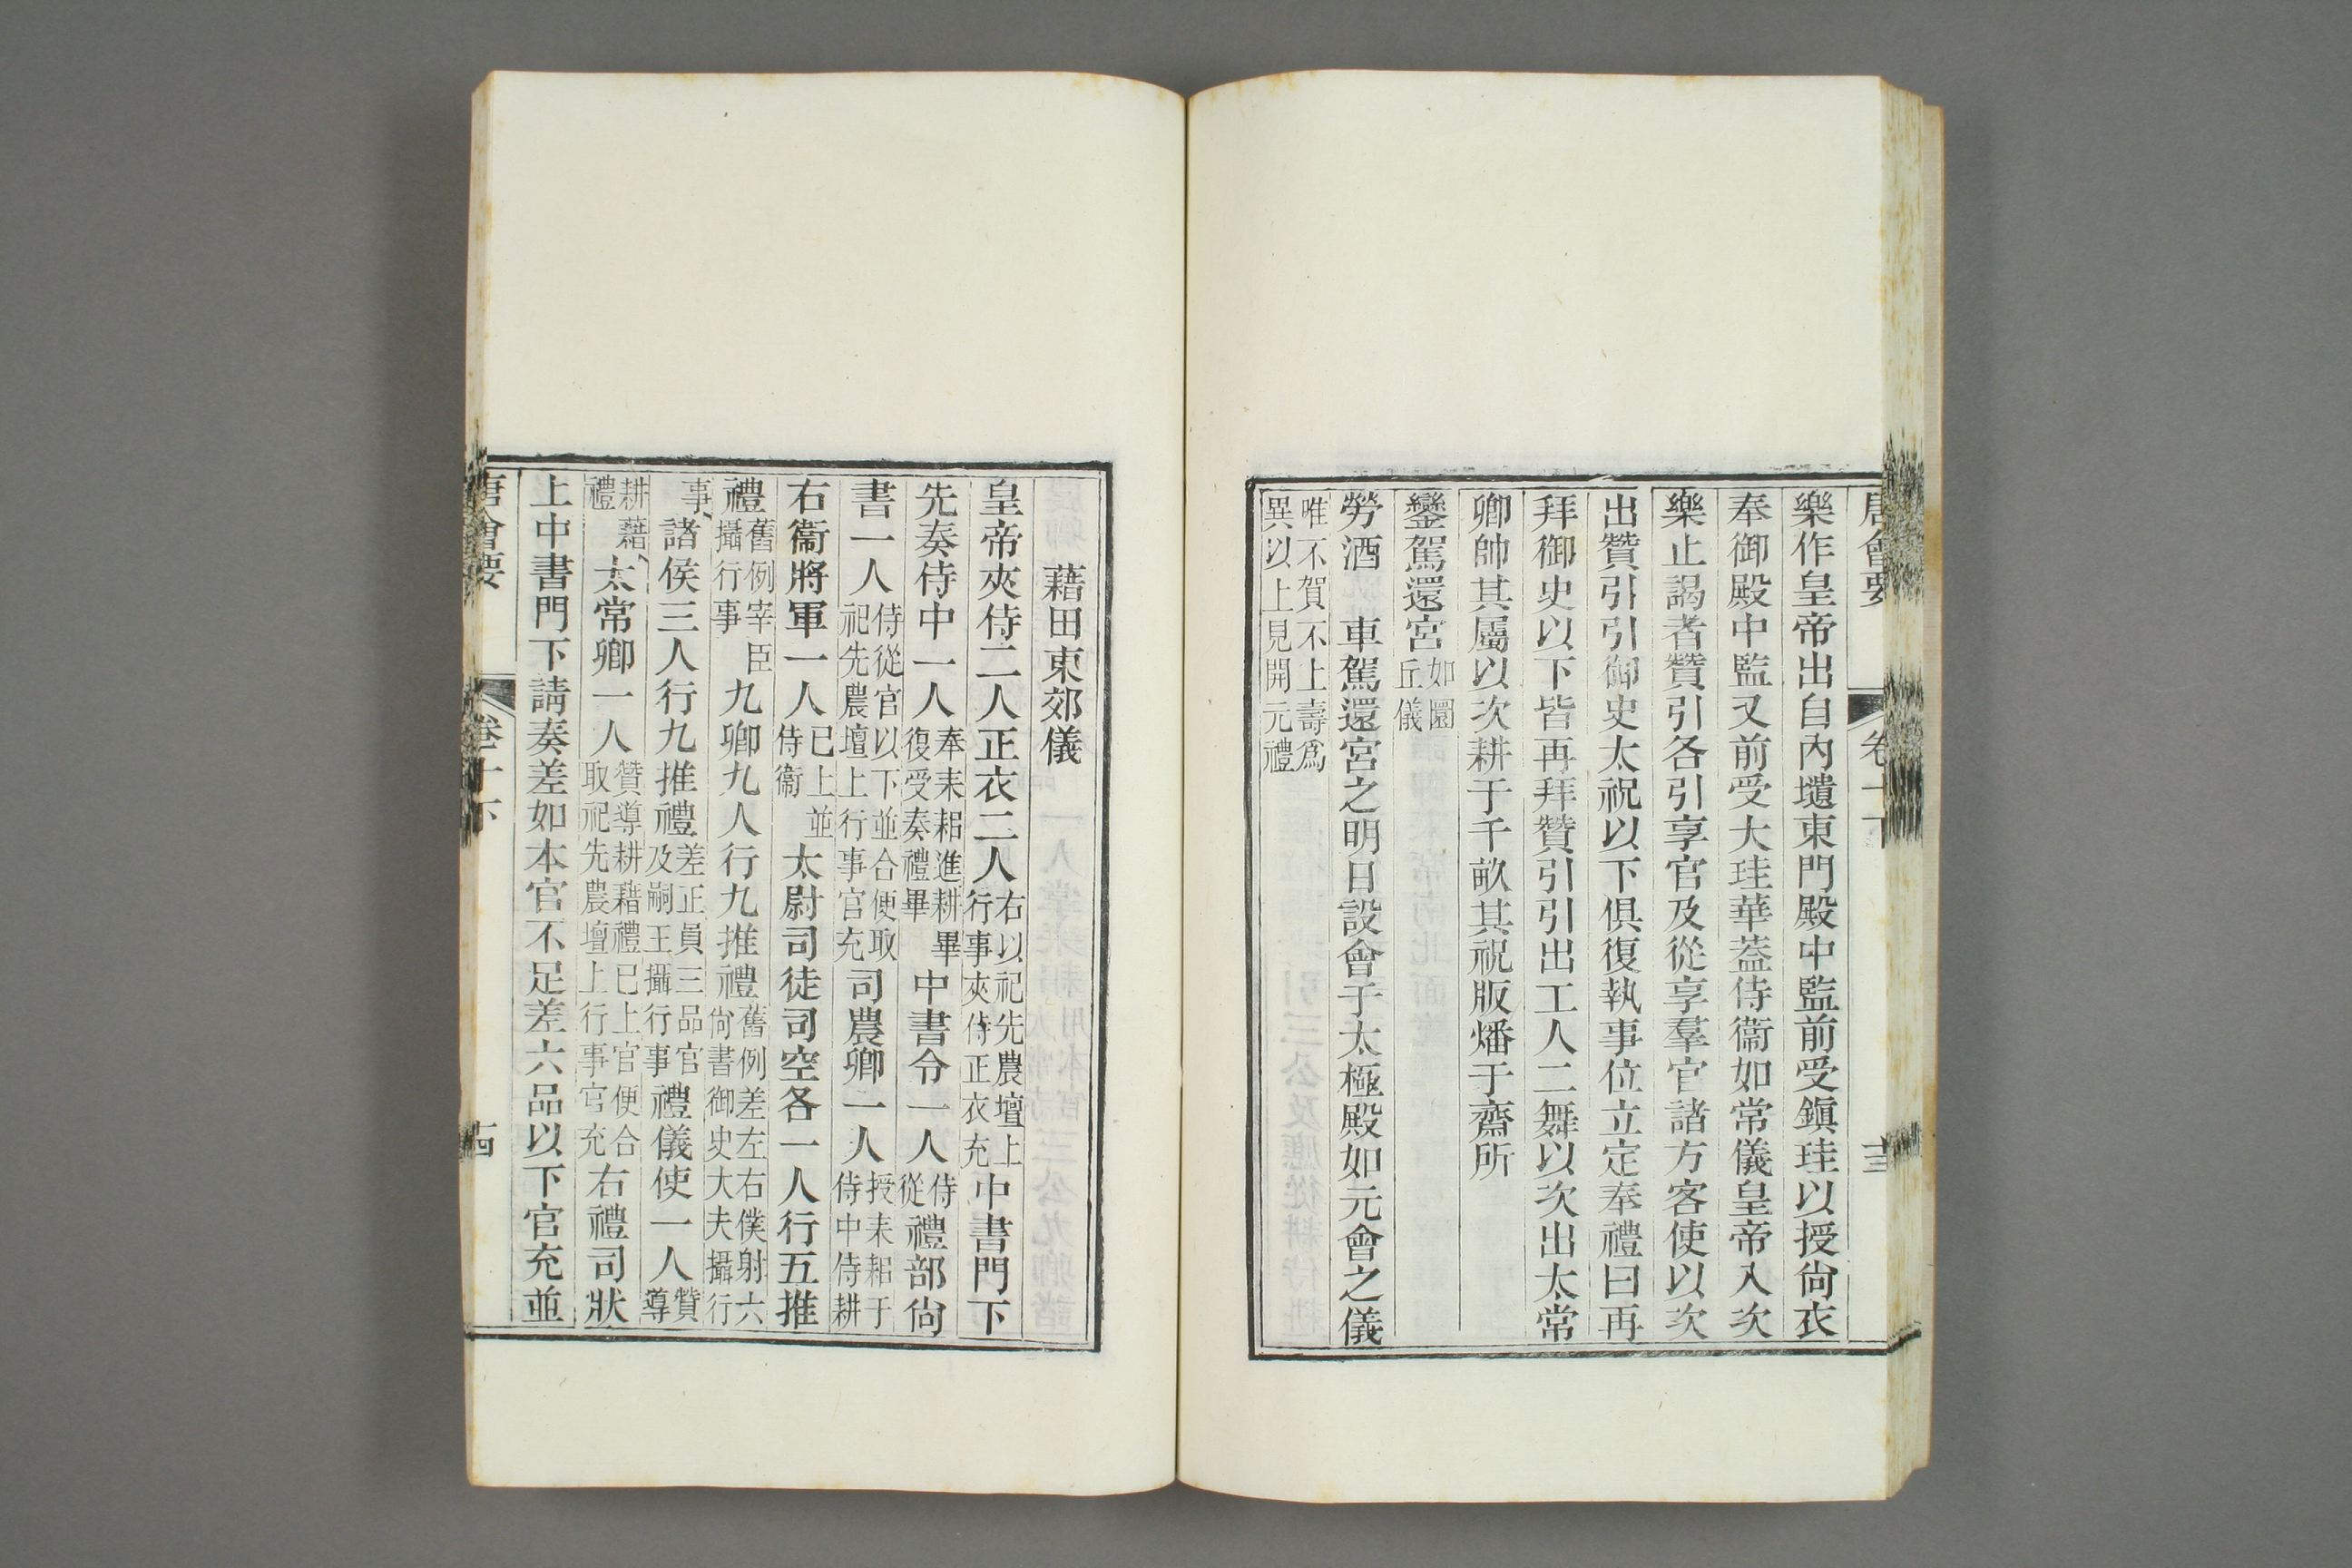 唐會要 卷十下 十三
樂作皇帝出自內壝東門殿中監前受鎭珪以授尙衣
奉御殿中監又前受大珪華葢侍衞如常儀皇帝入次
樂止謁者贊引各引享官及從享羣官諸方客使以次
出贊引引御史太祝以下俱復執事位立定奉禮曰再
拜御史以下皆再拜贊引引出工人二舞以次出太常
卿帥其屬以次耕于千畝其祝版燔于齋所
鑾駕還宮如圜丘儀
勞酒 車駕還宮之明日設會于太極殿如元會之儀
唯不賀不上壽爲異以上見開元禮
藉田東郊儀
皇帝夾侍二人正衣二人右以祀先農壇上行事夾侍正衣充中書門下
先奏侍中一人奉耒耜進耕畢復受奏禮畢中書令一人侍從禮部尙
書一人侍從官以下並合便取祀先農壇上行事官充司農卿一人授耒耜于侍中侍耕
右衞將軍一人已上並侍衞太尉司徒司空各一人行五推
禮舊例宰臣攝行事九卿九人行九推禮舊例差左右僕射六尙書御史大夫攝行
事諸侯三人行九推禮差正員三品官及嗣王攝行事禮儀使一人贊導
耕藉禮太常卿一人贊導耕藉禮已上官便合取祀先農壇上行事官充右禮司狀
上中書門下請奏差如本官不足差六品以下官充並
唐會要 卷十下 十四